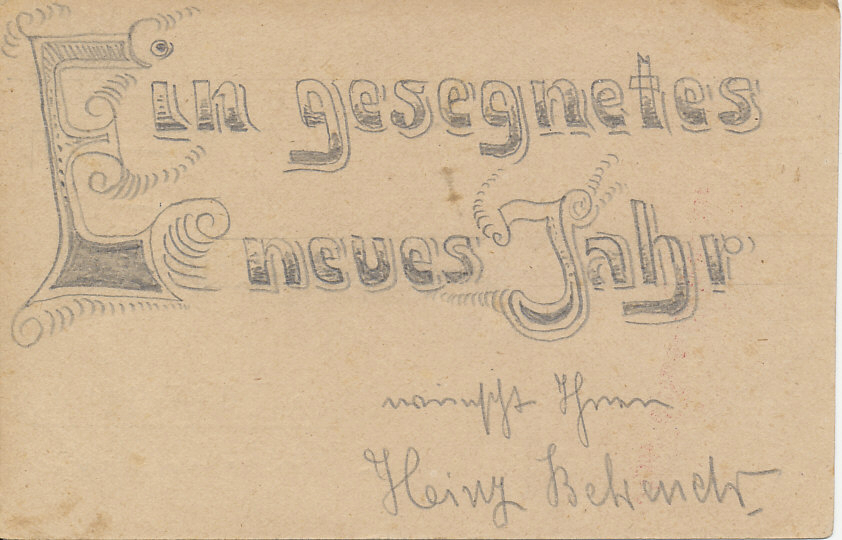 Ein gesegnetes
neues Jahr
wünscht Ihnen
Heinz